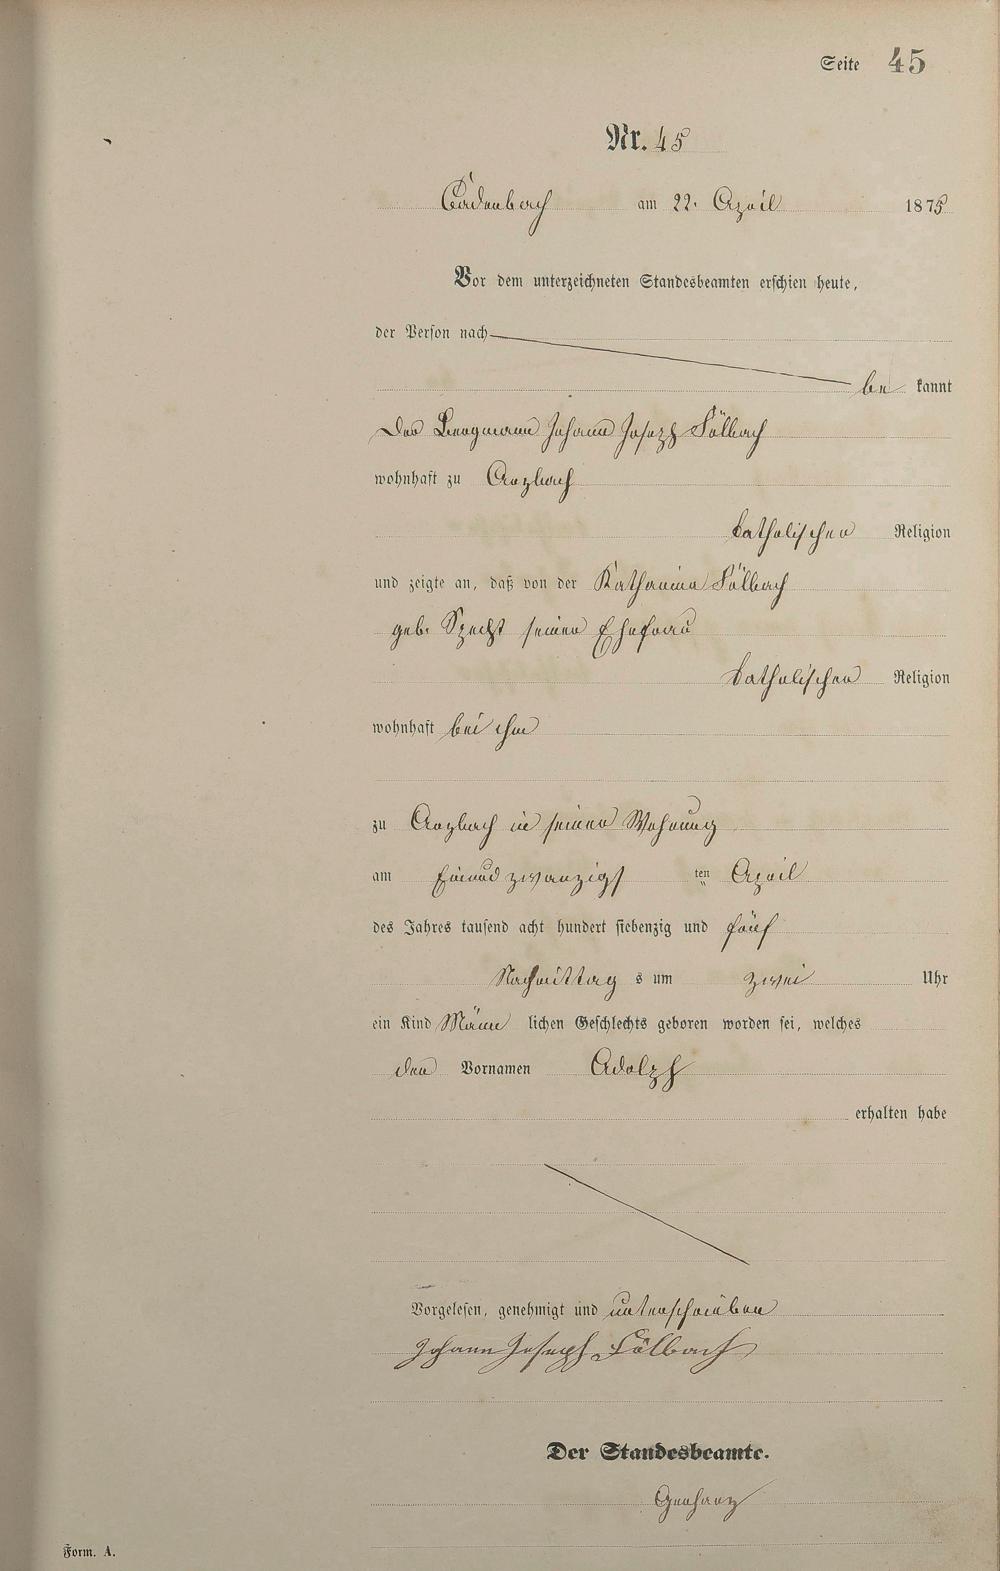 Seite 45
Nr. 45
Cadenbach am 22. April 1875
Vor dem unterzeichneten Standesbeamten erschien heute,
der Person nach
be kannt
Der Bergmann Johann Joseph Fölbach
wohnhaft zu Arzbach
katholischer Religion
und zeigte an, daß von der Katharina Fölbach
geb. Specht seiner Ehefrau
katholischer Religion
wohnhaft bei ihm
zu Arzbach in seiner Wohnung
am Einundzwanzigs ten April
des Jahres tausend acht hundert siebenzig und fünf
Nachmittag s um zwei Uhr
ein Kind Männ lichen Geschlechts geboren worden sei, welches
den Vornamen Adolph
erhalten habe
Vorgelesen, genehmigt und unterschrieben
Johann Joseph Fölbach
Der Standesbeamte.
Gerharz
Form. A.